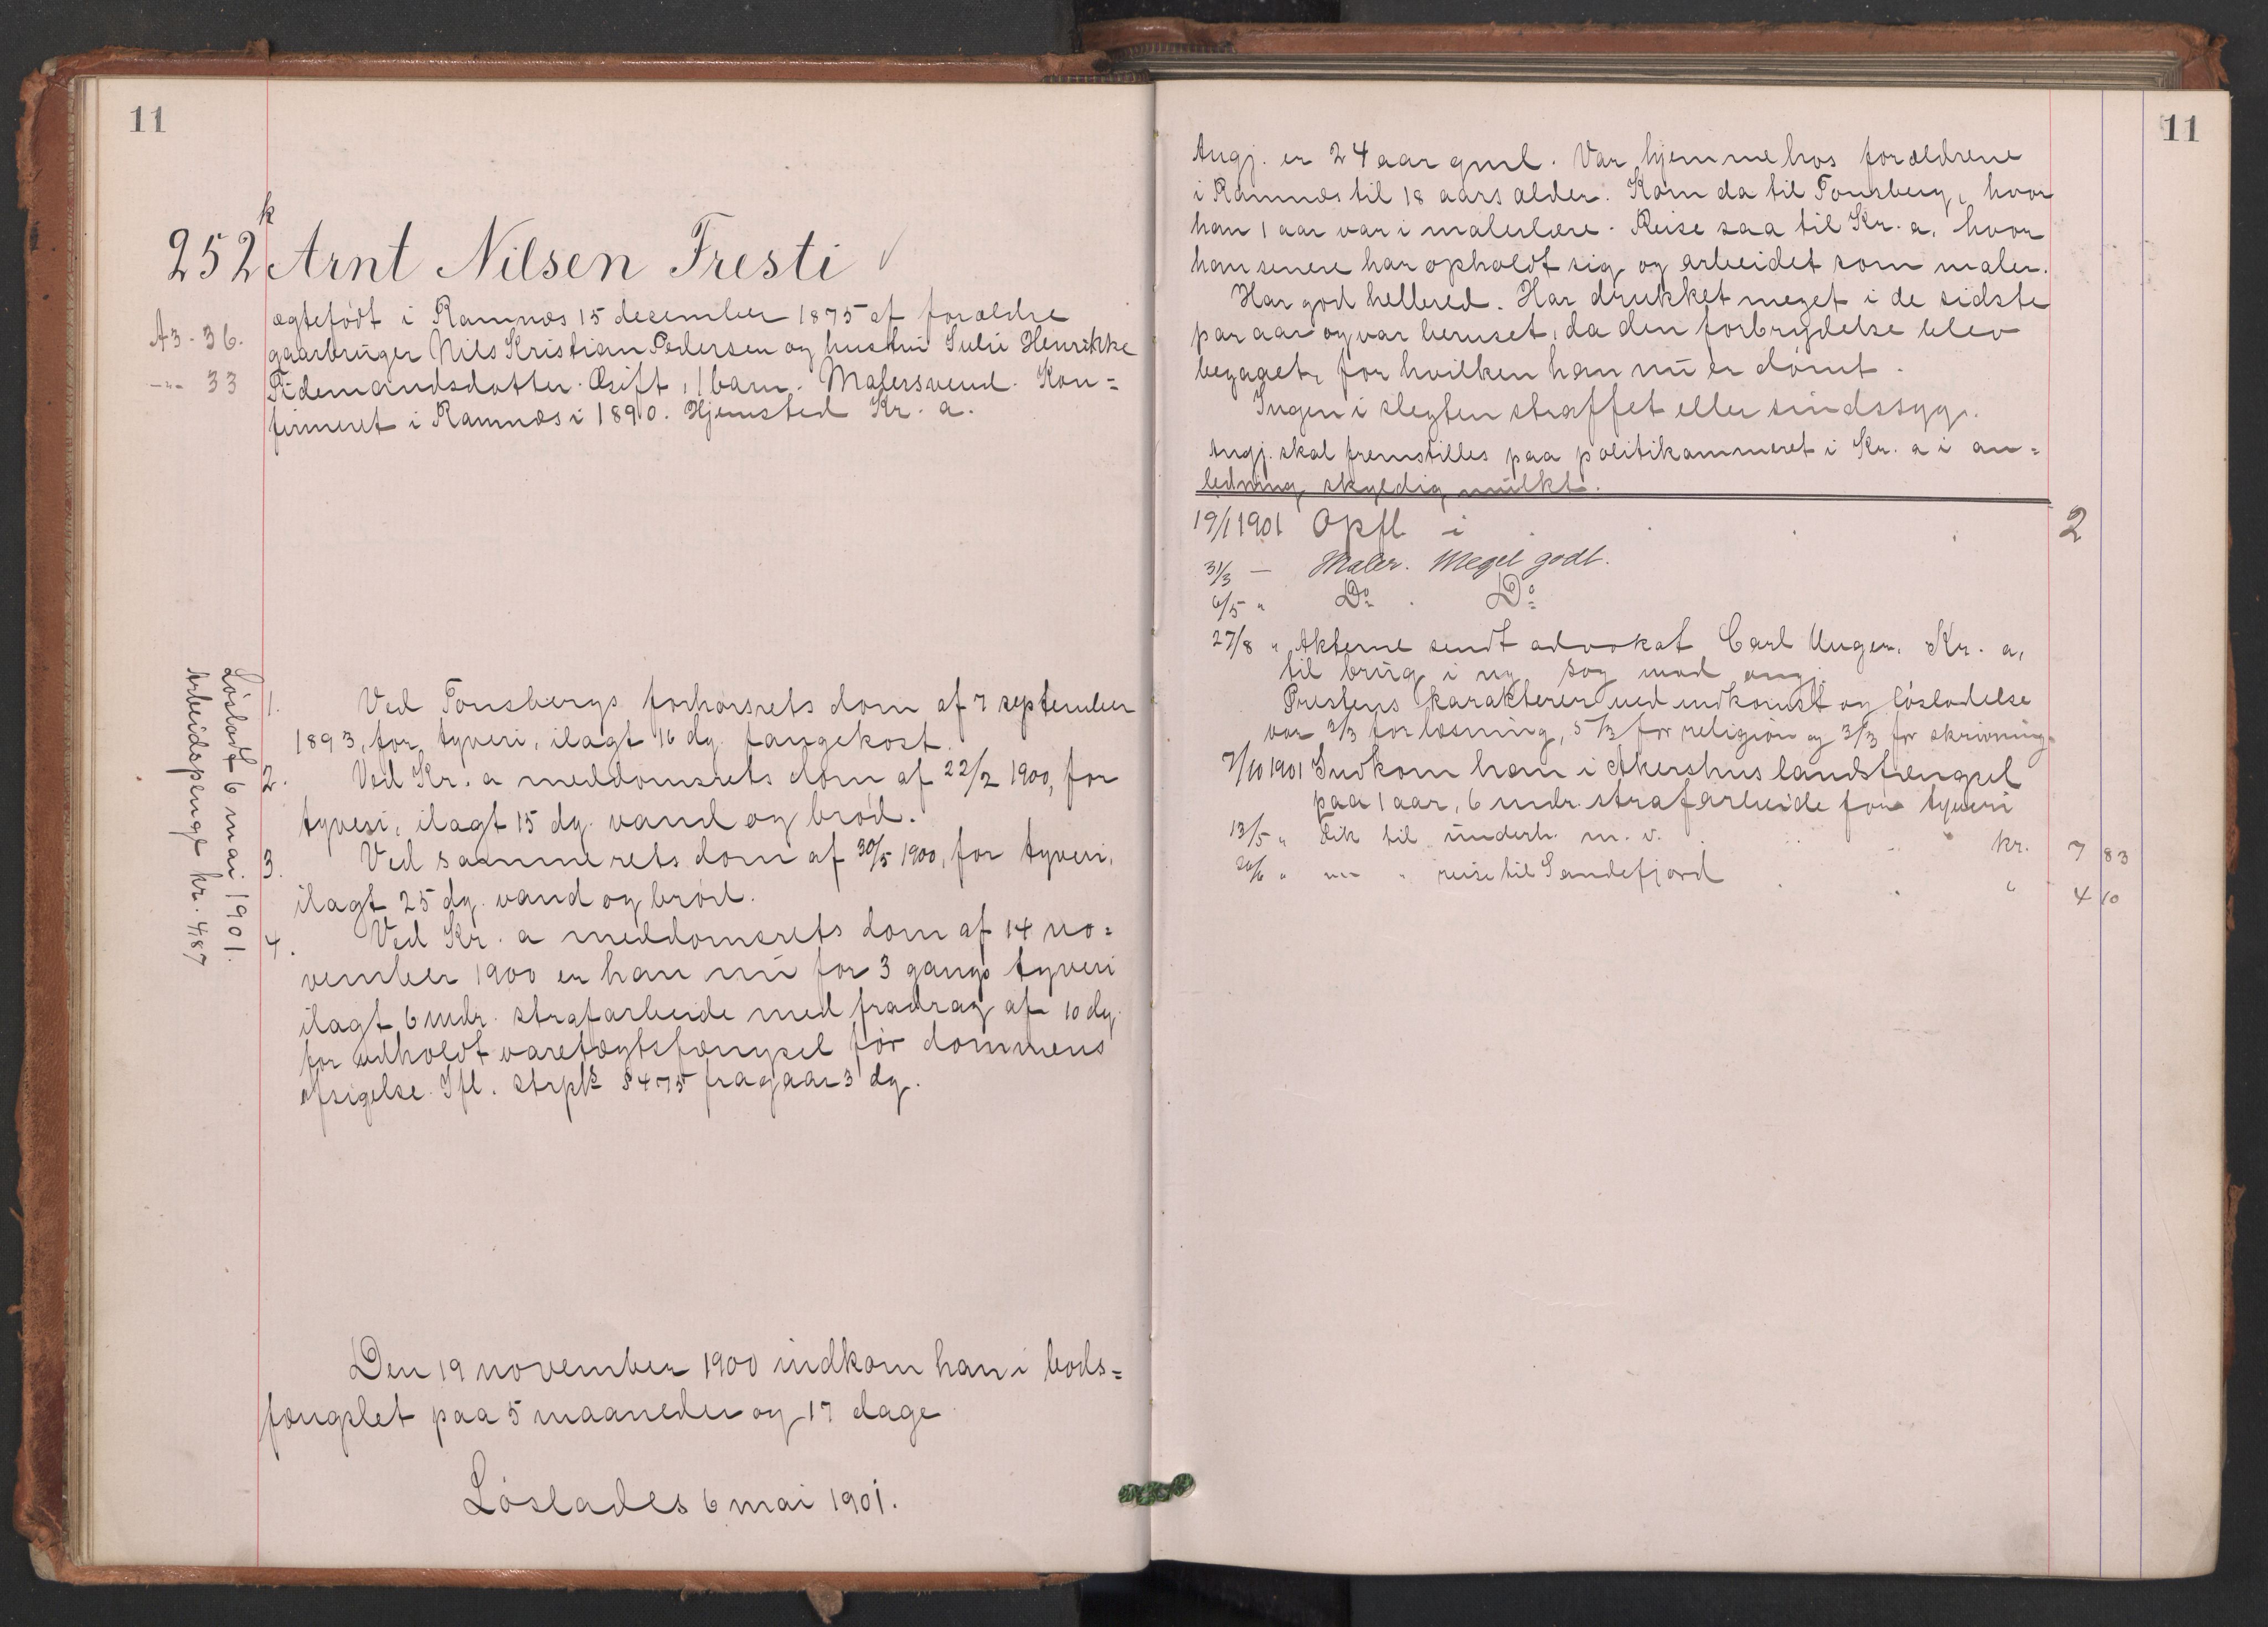 11
k
252 Arnt Nilsen Fresti
A3-36.
-"- 33
ægtefødt i Ramnæs 15 december 1875 af forældre
gaarbruger Nils Kristian Pedersen og hustru Julie Henrikke
Tidemandsdatter. Gift, 1 barn. Malersvend. Kon=
firmeret i Ramnæs i 1890. Hjemsted Kr.a.
Løsladt 6 mai 1901.
Arbeidspenge kr. 4,87
1. Ved Tønsbergs forhørsrets dom af 7 september
1893, for tyveri, ilagt 16 dg. fangekost.
2. Ved Kr.a meddomsrets dom af 22/2 1900, for
tyveri, ilagt 15 dg. vand og brød.
3. Ved samme rets dom af 30/5 1900, for tyveri,
ilagt 25 dg. vand og brød.
4. Ved Kr.a meddomsrets dom af 14 no=
vember 1900 er han nu for 3 gangs tyveri
ilagt 6 mdr. strafarbeide med fradrag af 10 dg.
for udholdt varetægtsfængsel før dommens
afsigelse. Ifl. strpl. § 475 fragaar 3 dg.
Den 19 november 1900 indkom han i bods=
fængslet paa 5 maaneder og 17 dage
Løslades 6 mai 1901.
11
Angj. er 24 aar gml. Var hjemme hos forældrene
i Ramnæs til 18 aars alder. Kom da til Tønsberg, hvor
han 1 aar var i malerlære. Reise saa til Kr.a, hvor
han senere har opholdt sig og arbeidet som maler.
Har god helbred. Har drukket meget i de sidste
par aar og var beruset, da den forbrydelse blev
begaaet, for hvilken han nu er dømt.
Ingen i slegten straffet eller sindssyg.
Angj. skal fremstilles paa politikammeret i Kr.a i an=
ledning skyldig mulkt.
19/1 1901 Opfl i 2
31/3 — Maler. Meget godt.
6/5 " Do. Do
27/8 " Akterne sendt advokat Carl Unger, Kr.a,
til brug i ny sag mod angj.
Prestens karakterer ved indkomst og løsladelse
var 3/3 for læsning, 5/3 for religion og 3/3 for skrivning.
7/10 1901 Indkom han i Akershus landsfængsel
paa 1 aar, 6 mdr. strafarbeide for tyveri
13/5 " Fik til underh. m.v. kr. 7 83
20/6 " -"- " reise til Sandefjord " 4 10